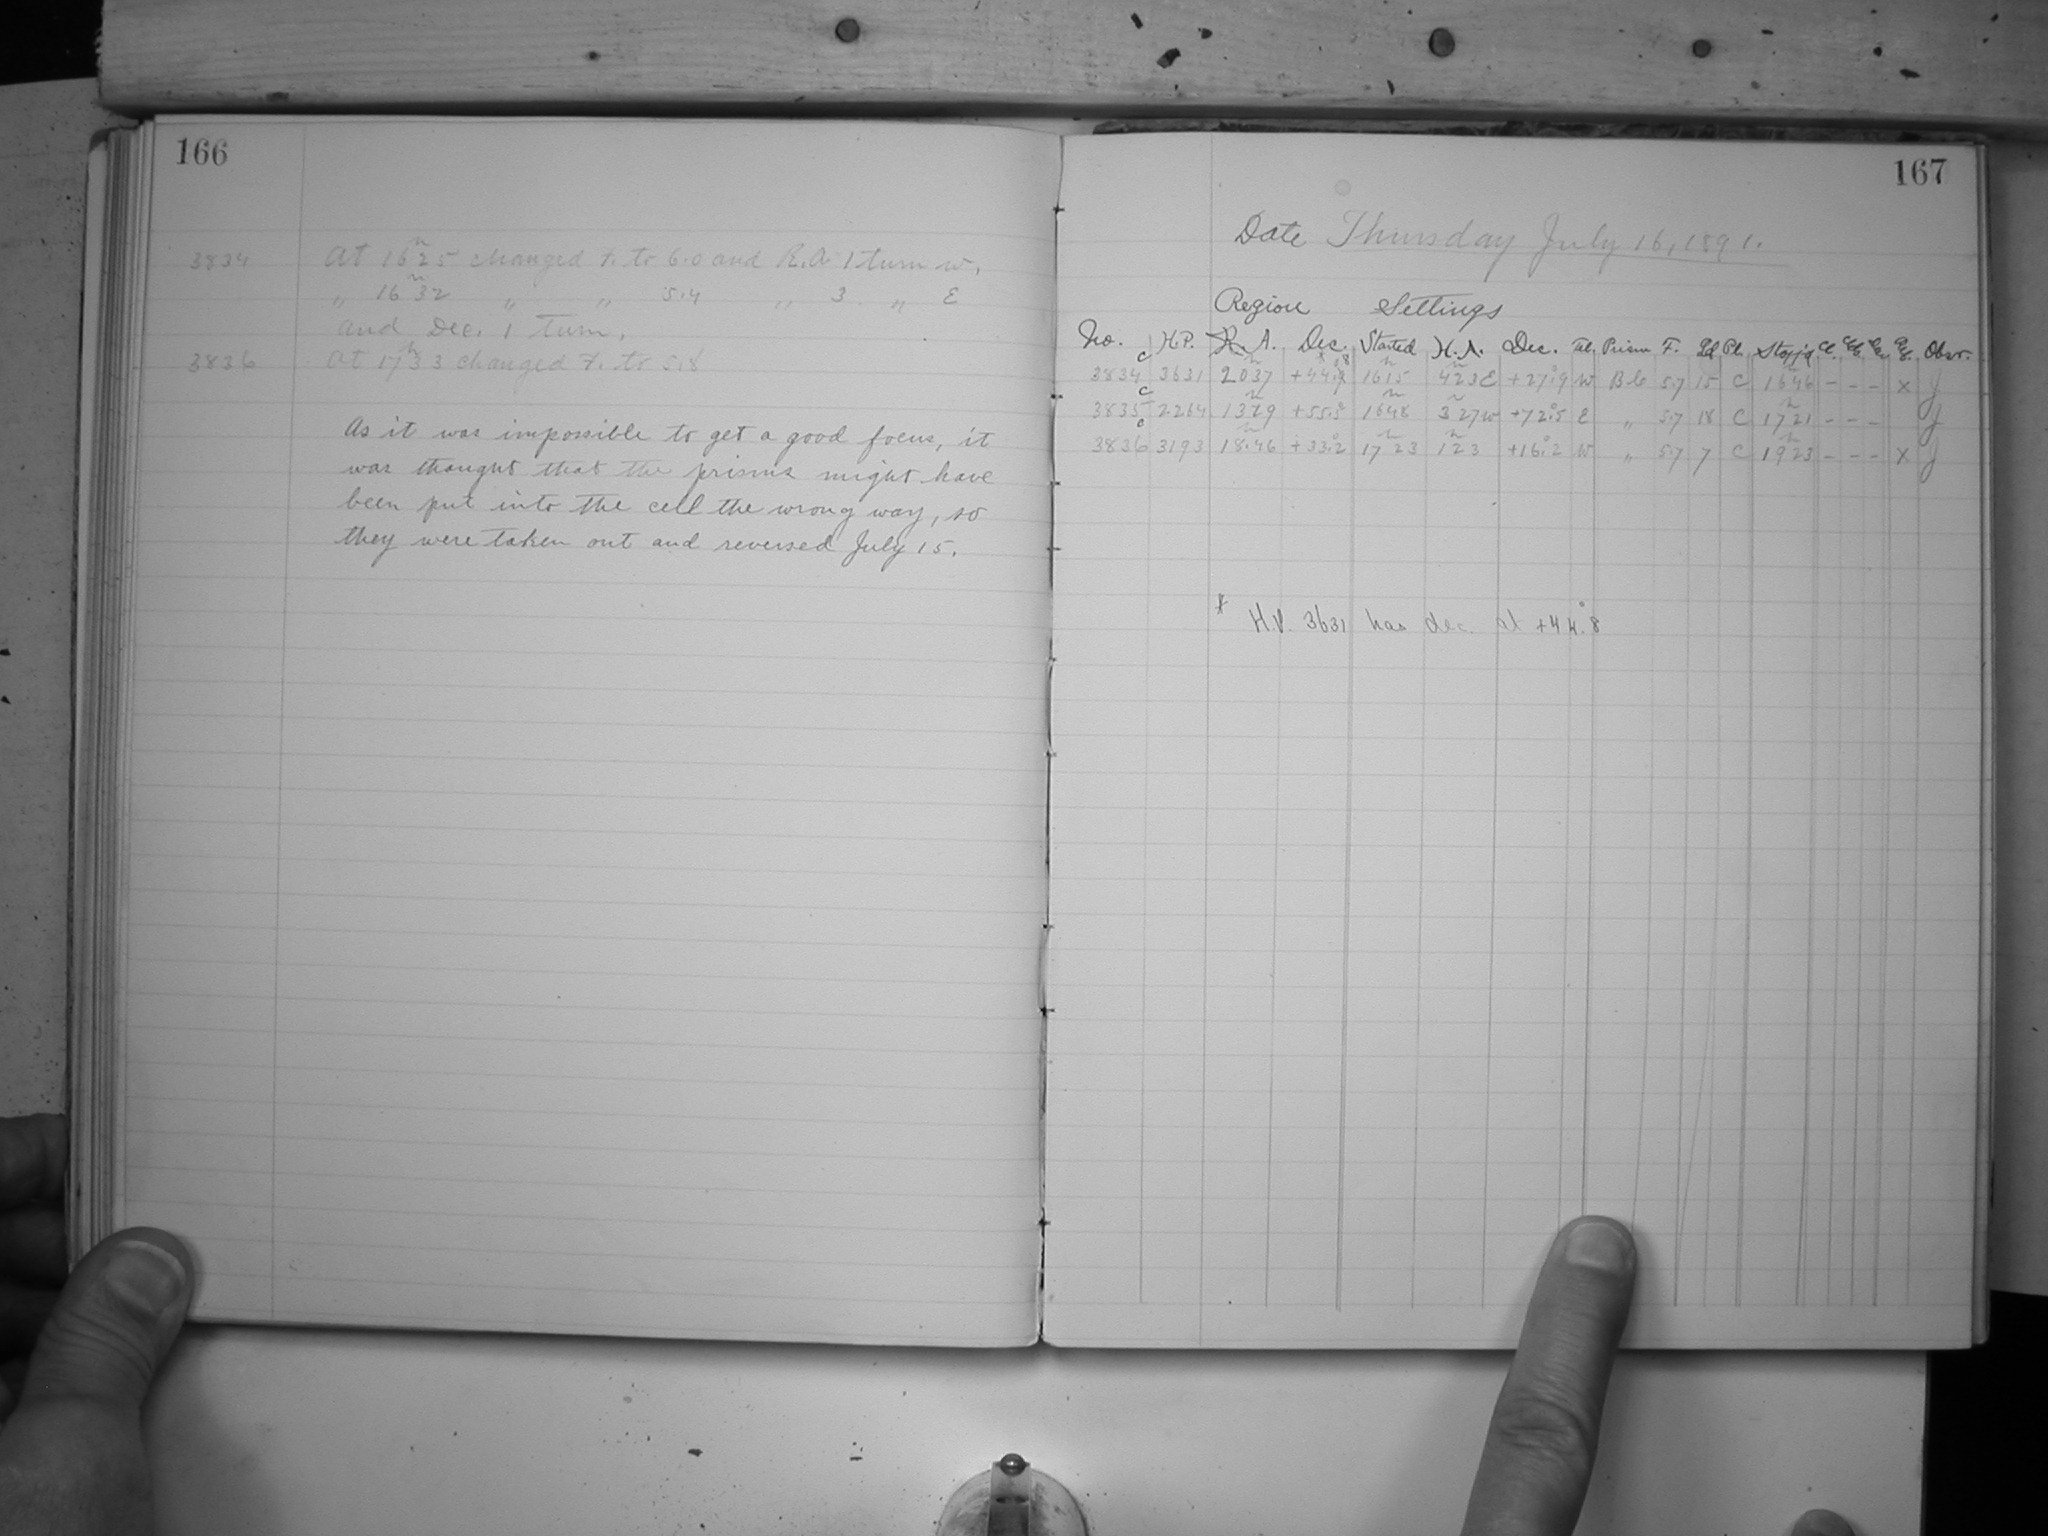 166
3834 At 16h25 changed F. to 6.0 and R.A. 1 turn w.
„ 16h32 „ „ 5.4 „ 3 „ E
and Dec. 1 turn.
3836 At 17h33 changed F. to 5.8
As it was impossible to get a good focus, it
was thought that the prisms might have
been put into the cell the wrong way, so
they were taken out and reversed July 15.
167
Date Thursday July 16, 1891.
Region Settings
No. H.P. R.A. Dec. Started H.A. Dec. Tel. Prism F. Pl. Stop'd Cl. Obsr.
3834 c 3631 20h37 16h15 4h23 E +27°.9 W B6 5.7 15 C 16h46 - - - x J
3835 c 2264 16h48 3h27 W +72°.5 E „ 5.7 18 C 17h21 - - - J
3836 c 3193 18h.46 +33°.2 17h23 1h23 +16°.2 W „ 5.7 7 C 19h23 - - - x J
* H.P. 3631 has dec. at +44°.8